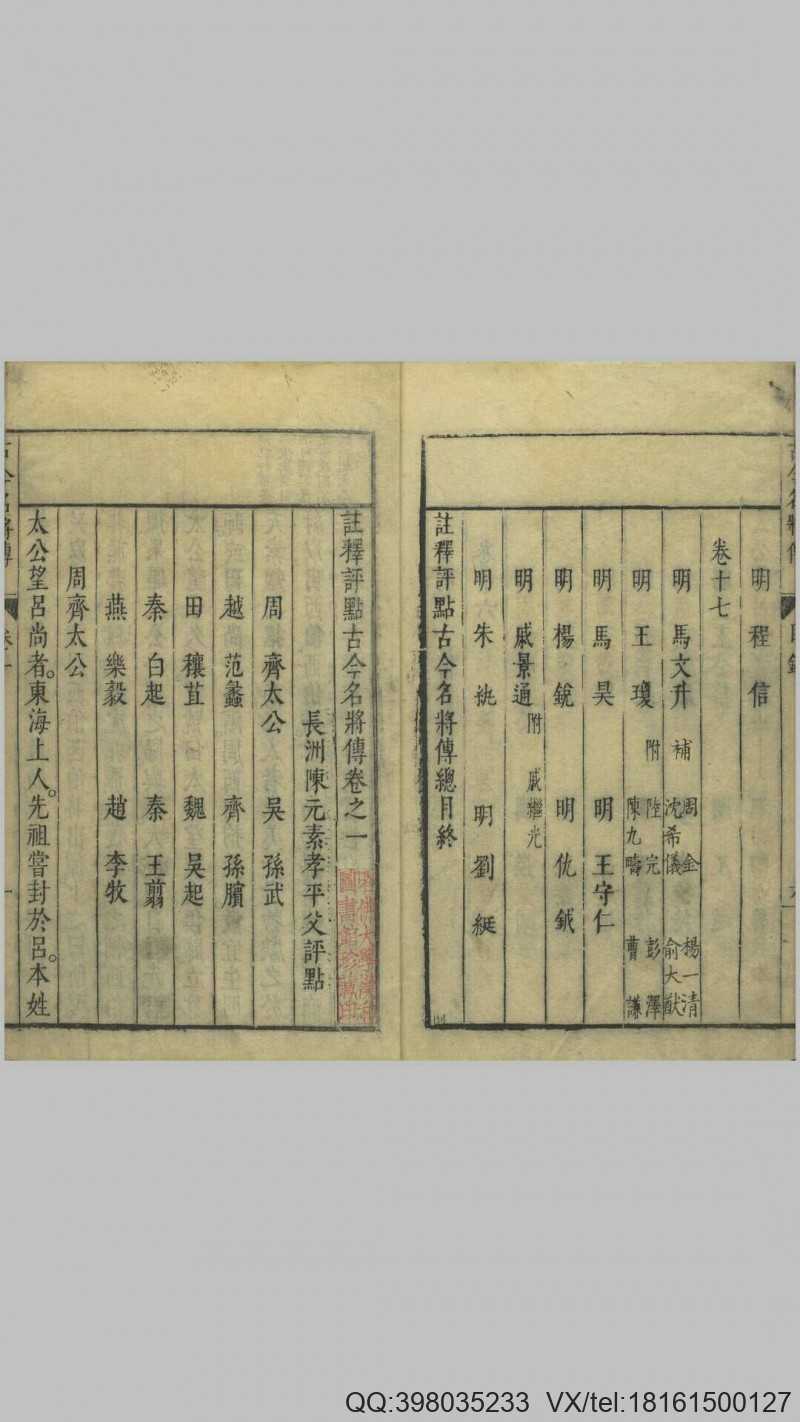 明 程 信
卷十七
明 馬文升 補 周金 沈希儀 楊一清 俞大猷
明 王 瓊 附 陸完 陳九疇 彭澤 曹謙
明 馬 昊 明 王守仁
明 楊 銳 明 仇 鉞
明 戚景通 附 戚繼光
明 朱 明 劉 綎
註釋評點古今名將傳總目終
註釋評點古今名將傳卷之一
長洲陳元素孝平父評點
周 齊太公 吳 孫武
越 范蠡 齊 孫臏
田 穰苴 魏 吳起
秦 白起 秦 王翦
燕 樂毅 趙 李牧
周齊太公
太公望呂尚者。東海上人。先祖嘗封於呂。本姓
古今名將傳 卷一 一
QQ:398035233 VX/tel:18161500127